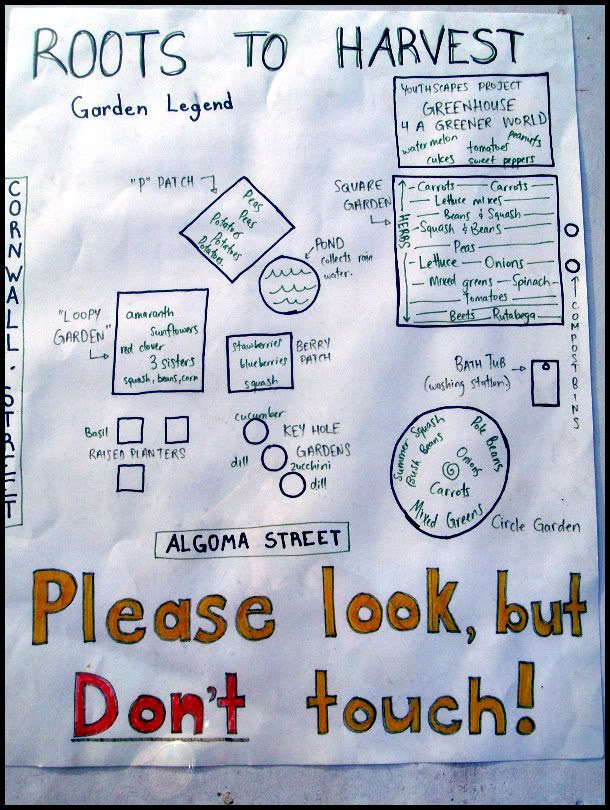 ROOTS TO HARVEST
Garden Legend
YOUTHSCAPES PROJECT
GREENHOUSE
4 A GREENER WORLD
watermelon tomatoes peanuts
cukes sweet peppers
CORNWALL STREET
"P" PATCH
Peas
Peas
Potatoes
Potatoes
Potatoes
POND
collects rain
water.
SQUARE
GARDEN
HERBS
Carrots Carrots
Lettuce mixes
Beans & Squash
Squash & Beans
Peas
Lettuce Onions
Mixed greens Spinach
Tomatoes
Beets Rutabega
COMPOST BINS
"LOOPY
GARDEN"
amaranth
sunflowers
red clover
3 sisters
squash, beans, corn
stawberries
blueberries
squash
BERRY
PATCH
BATH TUB
(washing station)
Basil
RAISED PLANTERS
cucumber
KEY HOLE
GARDENS
dill
zucchini
dill
Summer Squash
Bush Beans
Pole Beans
Onions
Carrots
Mixed Greens
Circle Garden
ALGOMA STREET
Please look, but
Don't touch!